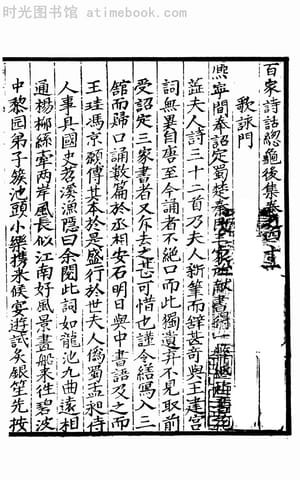 时光图书馆 atimebook.com
百家詩話總龜後集卷四十
歌詠門
熙寧間奉詔定蜀楚秦
蕋夫人詩三十二首乃夫人新筆而辭甚奇與王建宮
詞無異自唐至今誦者不絕口而此獨遺弃不見取前
受詔定三家書者又斥去之甚可惜也謹令繕寫入三
舘而歸口誦數篇於丞相安石明日與中書語及之而
王珪馮京願傳其本於是盛行於世夫人偽蜀孟昶侍
人事具國史苕溪漁隱曰余閱此詞如龍池九曲遠相
通楊栁絲牽兩岸風長似江南好風景畫船來往碧波
中黎园弟子簇池頭小樂携來候宴遊試炙銀笙先按